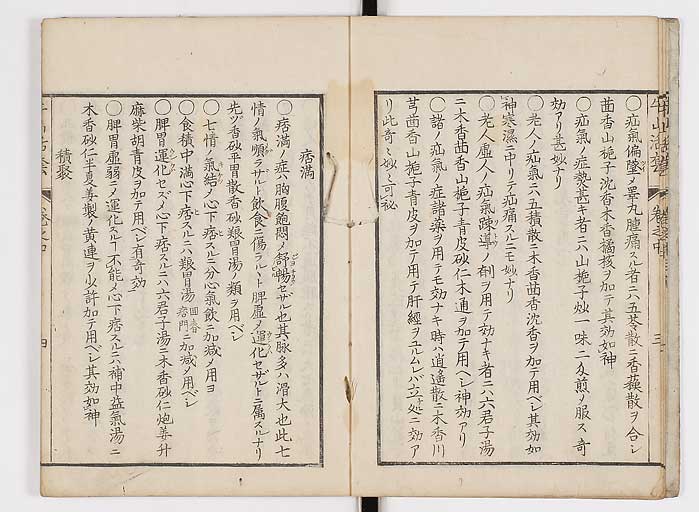 〇疝氣偏墜メ睪丸腫痛スル者ニハ五苓散ニ香蘓散ヲ合シ
茴香山梔子沈香木香橘核ヲ加テ其効如神
〇疝氣ノ症熱甚キ者ニハ山梔子炒一味ニ〆煎メ服ス奇
効アリ甚妙ナリ
〇老人ノ疝氣ニハ五積散ニ木香茴香沈香ヲ加テ用ベシ其効如
神寒濕ニ中リテ疝痛スルニモ妙ナリ
〇老人虚人ノ疝氣疎導ノ劑ヲ用テ効ナキ者ニハ六君子湯
ニ木香茴香山梔子青皮砂仁木通ヲ加テ用ベシ神効アリ
〇諸ノ疝氣ノ症諸薬ヲ用テモ効ナキ時ハ逍遙散ニ木香川
芎茴香山梔子青皮ヲ加テ用テ肝經ヲユルムレバ立処ニ効ア
リ此奇〻妙〻可秘
痞満
〇痞満ノ症ハ胸腹飽悶メ舒暢セザル也其脉多ハ滑大也此七
情ノ氣欝ラサルト飲食ニ傷ラルヽト脾虚メ運化セザルトニ属スルナリ
先ヅ香砂平胃散香砂養胃湯ノ類ヲ用ベシ
〇七情ノ氣結メ心下痞スルニ分心氣飲ニ加减メ用ヨ
〇食積中満心下痞スルニハ養胃湯回春痞門ニ加减メ用ベシ
〇脾胃運化セズメ心下痞スルニハ六君子湯ニ木香砂仁炮姜升
麻柴胡青皮ヲ加テ用ベシ有奇効
〇脾胃虚弱ニメ運化スルヿ不能メ心下痞スルニハ補中益氣湯ニ
木香砂仁半夏姜製メ黄連ヲ少許加テ用ベシ其効如神
積聚